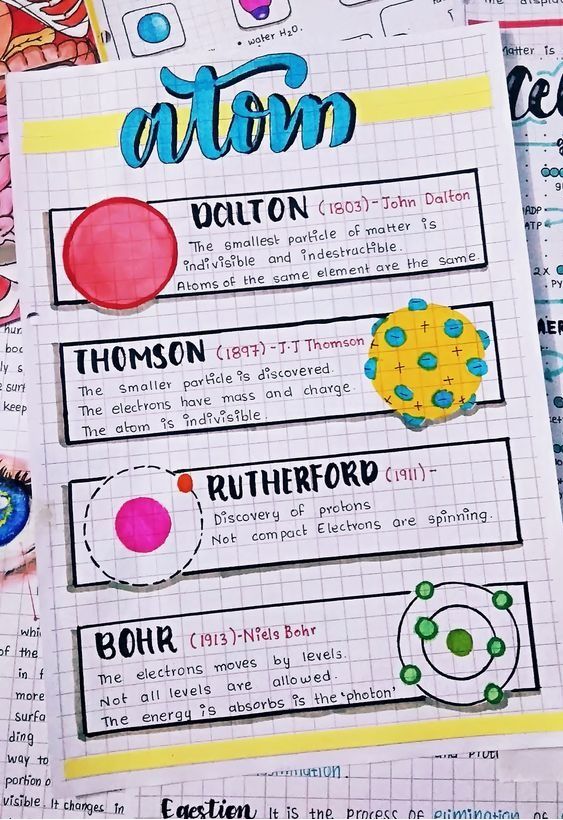 • water H₂O.
matter is
atom
DALTON (1803)-John Dalton
The smallest particle of matter is
indivisible and indestructible.
Atoms of the same element are the same.
THOMSON (1897)-J.J Thomson
The smaller particle is discovered.
The electrons have mass and charge.
The atom is indivisible.
RUTHERFORD (1911)-
Discovery of protons
Not compact Electrons are spinning.
BOHR (1913)-Niels Bohr
The electrons moves by levels.
Not all levels are allowed.
The energy is absorbs is the 'photon'
ADP
ATP
2x
keep
of the
in
more
ding
way to
portion o
visible. It changes in
Egestion It is the process of elimination of